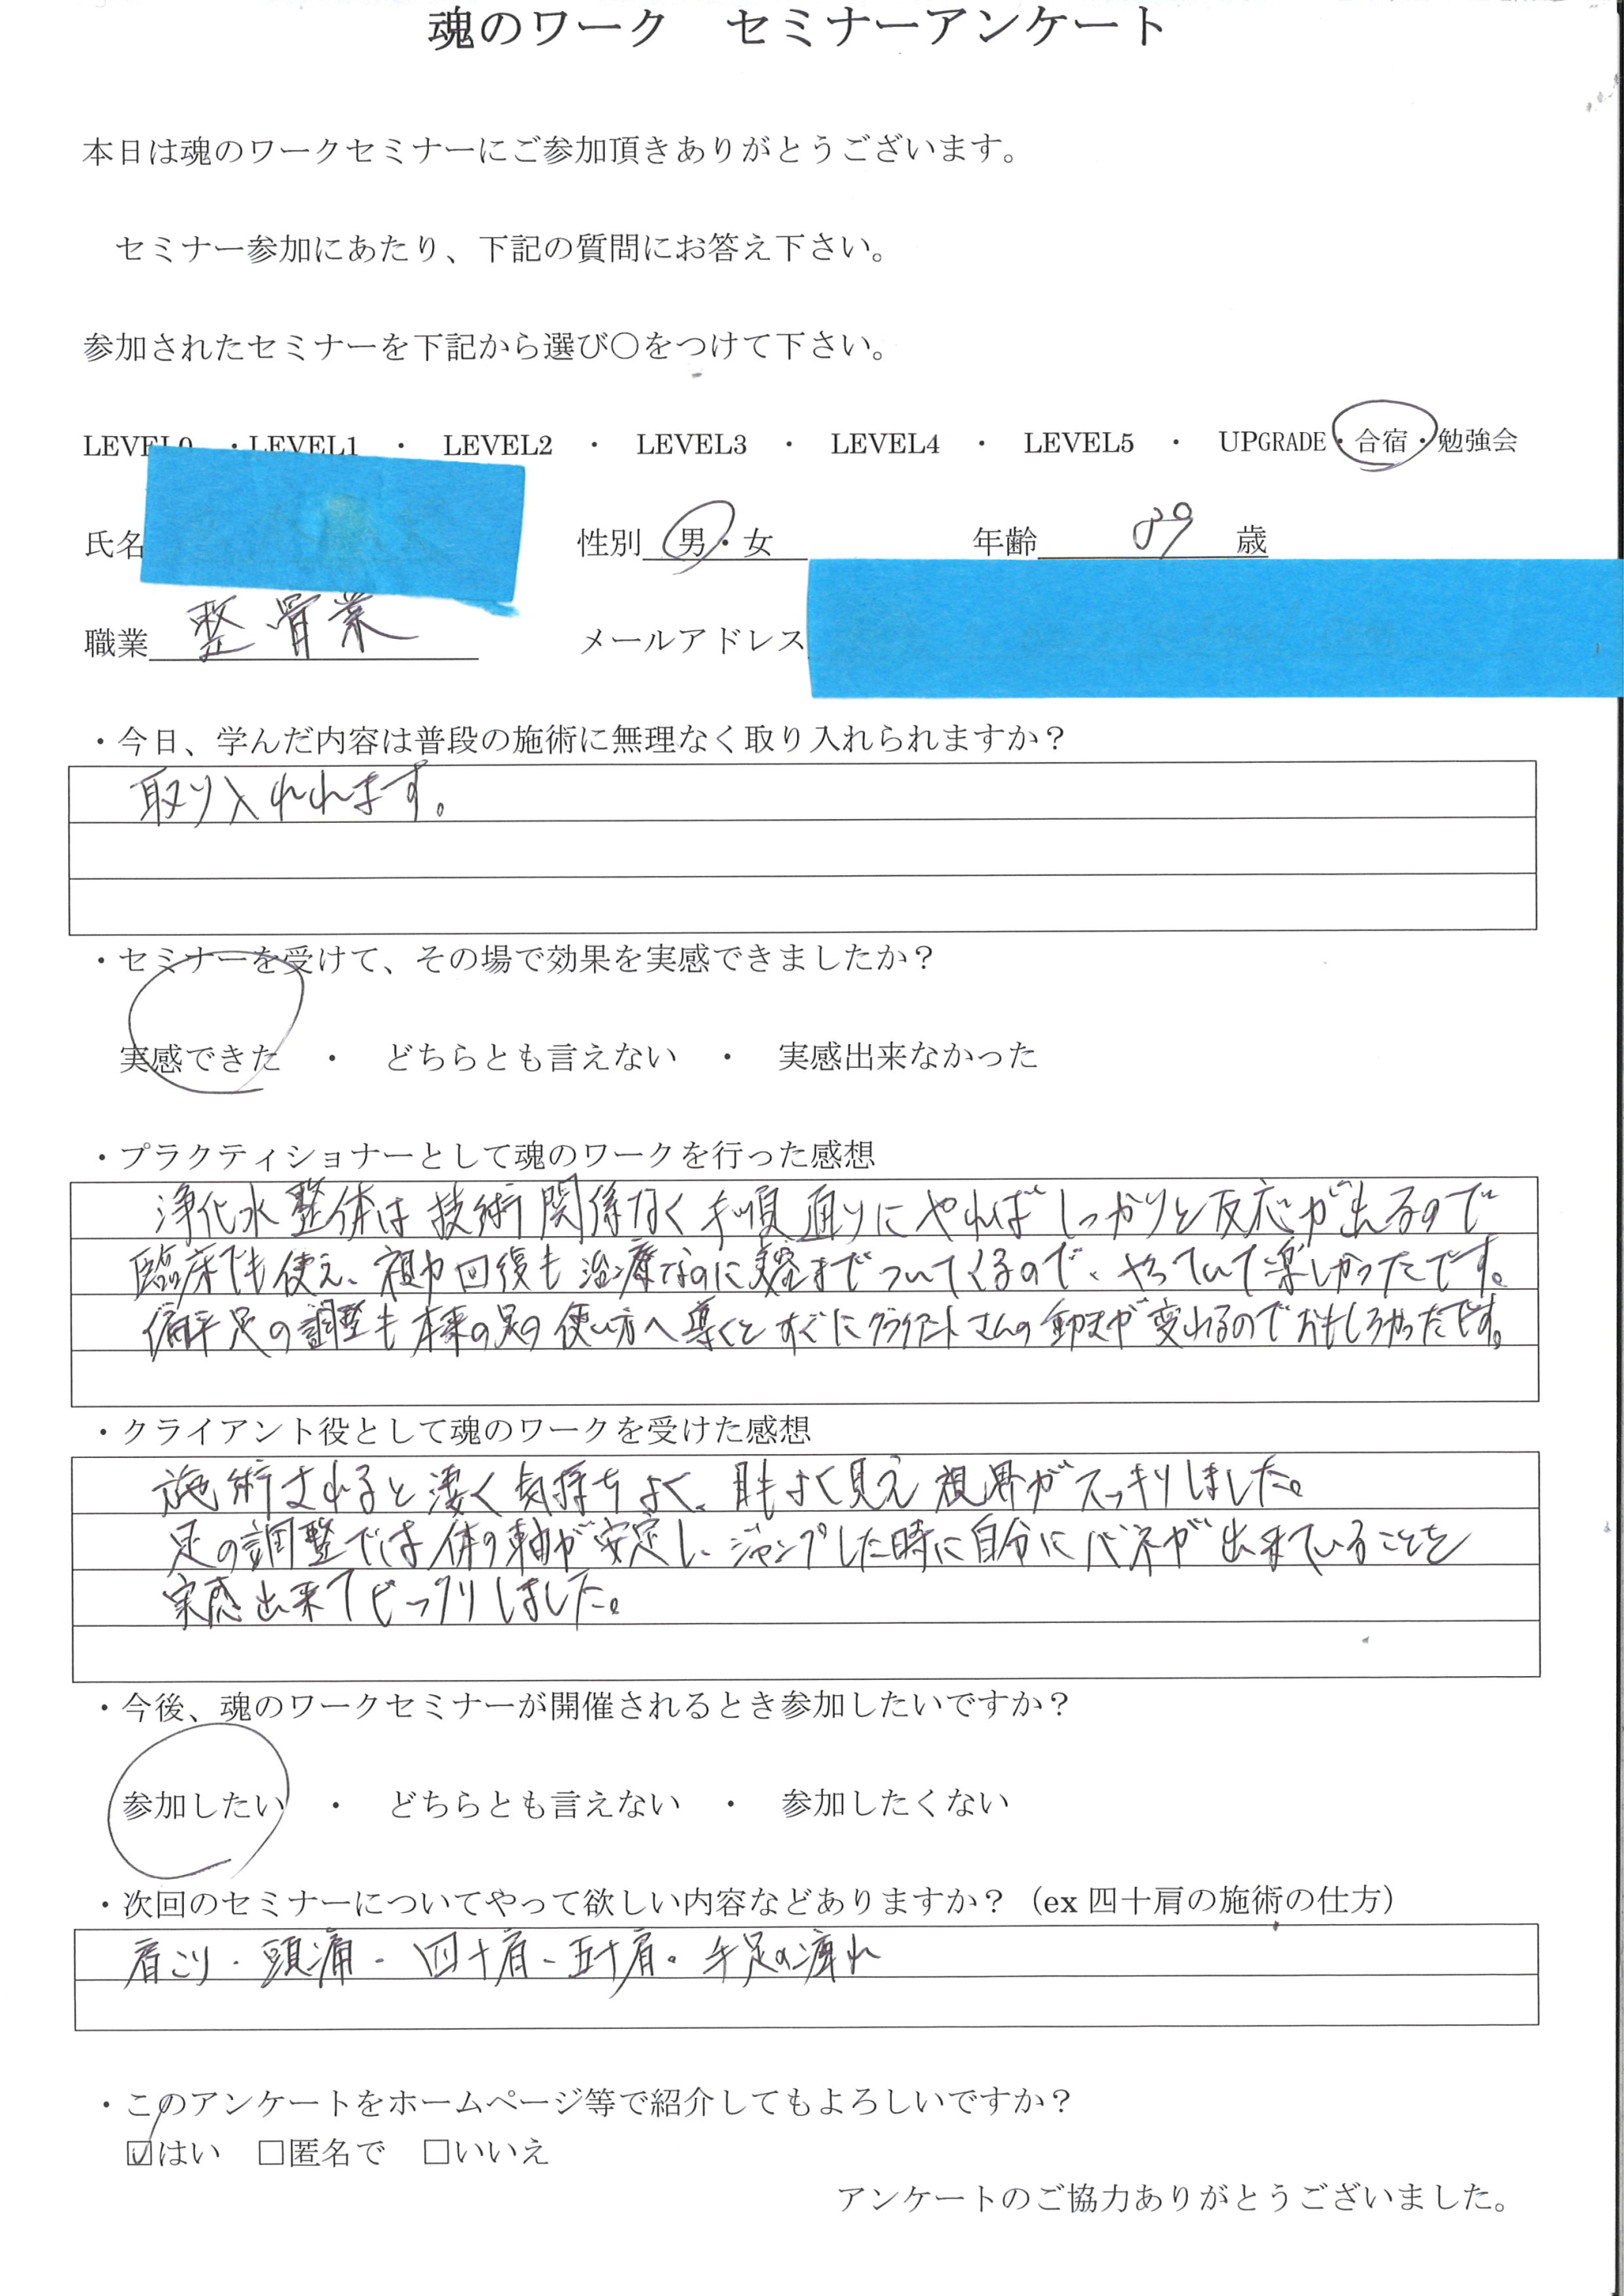 魂のワーク　セミナーアンケート
本日は魂のワークセミナーにご参加頂きありがとうございます。
セミナー参加にあたり、下記の質問にお答え下さい。
参加されたセミナーを下記から選び〇をつけて下さい。
LEVEL0 ・LEVEL1 ・ LEVEL2 ・ LEVEL3 ・ LEVEL4 ・ LEVEL5 ・ UPGRADE・合宿・勉強会
氏名 性別 男・女 年齢 39 歳
職業 整骨業 メールアドレス
・今日、学んだ内容は普段の施術に無理なく取り入れられますか？
取り入れれます。
・セミナーを受けて、その場で効果を実感できましたか？
実感できた ・ どちらとも言えない ・ 実感出来なかった
・プラクティショナーとして魂のワークを行った感想
浄化水整体は技術関係なく手順通りにやればしっかりと反応が出るので
臨床でも使え、視力回復も治療なのに美容までついてくるので、やっていて楽しかったです。
偏平足の調整も本来の足の使い方へ導くとすぐにクライアントさんの動きが変わるのでおもしろかったです。
・クライアント役として魂のワークを受けた感想
施術されると凄く気持ちよく、目もよく見え視界がスッキリしました。
足の調整では体の軸が安定し、ジャンプした時に自分にバネが出来ていることを
実感出来てビックリしました。
・今後、魂のワークセミナーが開催されるとき参加したいですか？
参加したい ・ どちらとも言えない ・ 参加したくない
・次回のセミナーについてやって欲しい内容などありますか？（ex 四十肩の施術の仕方）
肩こり・頭痛・四十肩・五十肩・手足の痺れ
・このアンケートをホームページ等で紹介してもよろしいですか？
☑はい □匿名で □いいえ
アンケートのご協力ありがとうございました。